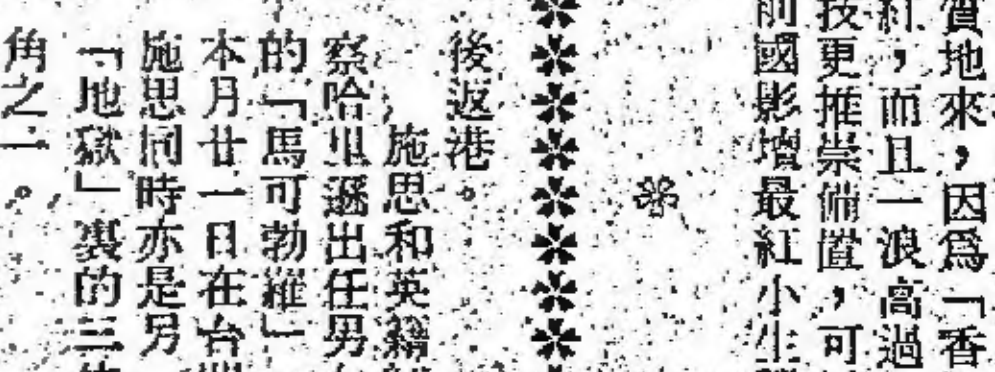 地來，因爲「香
紅，而且一浪高過
技更推崇備置，可
前國影壇最紅小生
後返港。
施思和英籍
察哈里遜出任男
的「馬可勃羅」
本月廿一日在台
施思同時亦是另
「地獄」裏的三
角之一。